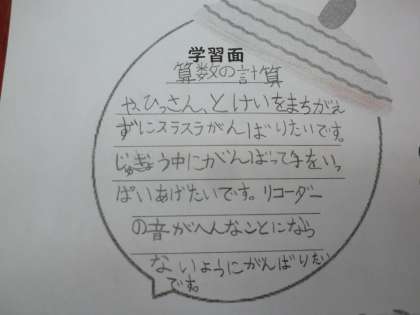 学習面
算数の計算
や、ひっさん、とけいをまちがえ
ずにスラスラがんばりたいです。
じゅぎょう中にがんばって手をいっ
ぱいあげたいです。リコーダー
の音がへんなことになら
ないようにがんばりたい
です。